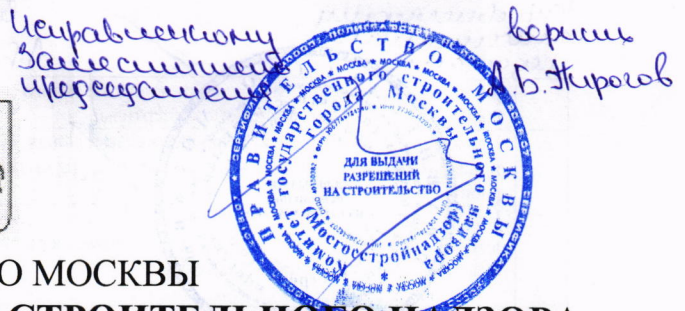 Исправленному верить
Заместитель
председателя А.Б. Пирогов
ПРАВИТЕЛЬСТВО МОСКВЫ
Комитет государственного строительного надзора
города Москвы
(Мосгосстройнадзор)
ДЛЯ ВЫДАЧИ
РАЗРЕШЕНИЙ
НА СТРОИТЕЛЬСТВО
О МОСКВЫ
СТРОИТЕЛЬНОГО НАДЗОРА